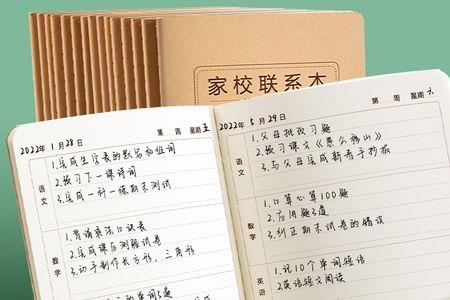 家校联系本
2022年 1月 28日 第 周 星期 五
语文
1.完成生字表的默写和组词
2.预习下一课诗词
3.完成一科一练期末测试
数学
1.背诵乘法口诀表
2.完成课后测验试卷
3.动手制作长方形、三角形
2022年 5月 29日 第 周 星期 六
语文
1.父母批改习题
2.预习课文《愚公移山》
3.与父母完成新春手抄报
数学
1.口算心算100题
2.应用题3道
3.纠正期末试卷的错误
英语
1.记10个单词短语
2.英语短文阅读